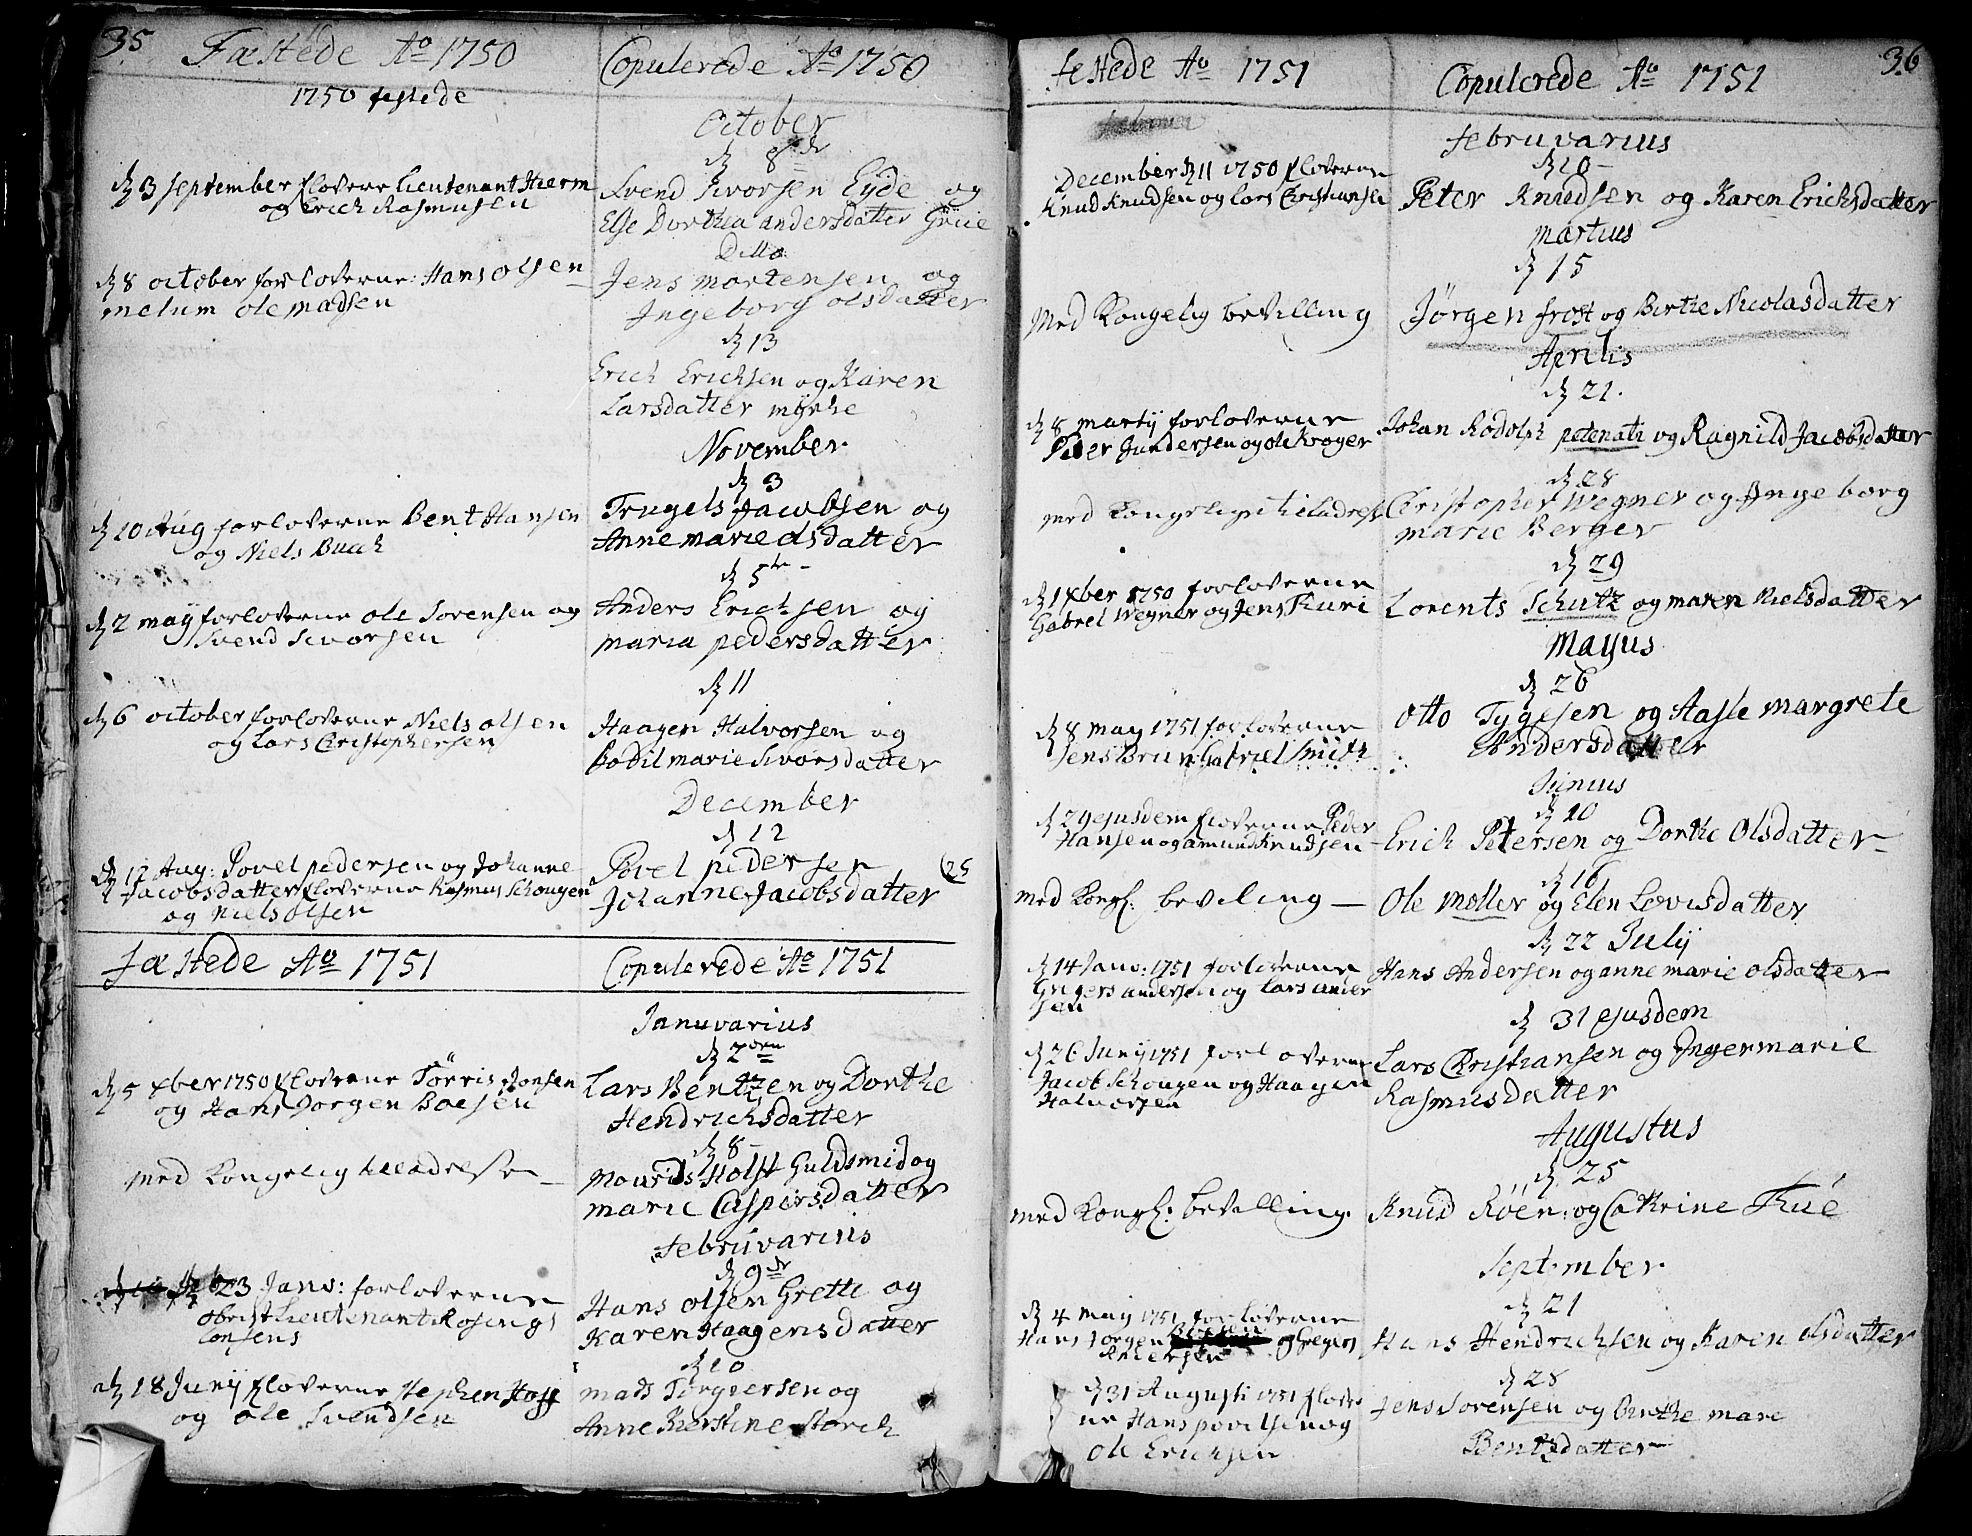 35
Fæstede Aº 1750
1750 festede
d 3 September floverne Lieutenant Hierm
og Erich Rasmusen
d 8 october forloverne: Hans olsen
melum ole madsen
d 10 Aug forloverne Bent Hansen
og Niels Buch
d 2 may forloverne ole Sorensen og
Svend Sivorsen
d 6 october forloverne Niels olsen
og Lars Christophersen
d 12 Aug: Povel pedersen og Johanne
Jacobsdatter floverne Rasmus Schougen
og Niels olsen
Copulerede Aº 1750
October
d 8de
Svend Sivorsen Eyde og
Else Dorthea andersdatter Griie
Ditto
Jens mortensen og
Ingeborg olsdatter
d 13
Erich Erichsen og Karen
Larsdatter myrhe
November
d 3
Trugels Jacobsen og
Anne marie olsdatter
d 5te
Anders Erichsen og
maria pedersdatter
d 11
Haagen Halvorsen og
Bodil marie Sivorsdatter
December
d 12
Povel pedersen 25
Johanne Jacobsdatter
Fæstede Aº 1751
d 5 xber 1750 floverne Törris Jonsen
og Hans Jorgen Boesen
med Kongelig
23 Janv: forloverne
obrist Lieutenant Rosings
Consens
d 18 Junij floverne Stephen Hoff
og ole Svendsen
Copulerede Aº 1751
Januvarius
d 2den
Lars Bentzen og Dorthe
Hendrichsdatter
d 8
Mourids Holst Guldsmid og
marie Caspersdatter
Februvarius
d 9de
Hans olsen Grette og
Karen Haagensdatter
d 10
mads Torgversen og
Anne Kierstine Storch
36
festede Aº 1751
December d 11 1750 floverne
Knud Knudsen og Lars Christiansen
Med Kongelig bevilling
d 8 martij forloverne
Peder Gundersen og ole Kroger
med Kongelige
d 1 xber 1750 forloverne
Gabrel Wegner og Jens Kuri
d 8 may 1751 forloverne
Jens Brun Gabriel Smith
d 29 ejusdem floverne Peder
Hansen og amund Knudsen
med Kongl: beviling
d 14 Janv: 1751 forloverne
Gregers andersen og Lars ander
sen
d 26 Junij 1751 forloverne
Jacob Schougen og Haagen
Halvorsen
med Kongl: bevilling
d 4 may 1751 forloverne
Hans Jorgen Boesen og Gregers
Andersen
d 31 Augusti 1751 flover
ne Hans povelsen og
ole Erichsen
Copulerede Aº 1751
Februvarius
d 10
Peter Knudsen og Karen Erichsdatter
martius
d 15
Jørgen frost og Birthe Nicolasdatter
Aprilis
d 21.
Johan Rodolph petenati og Ragnild Jacobsdatter
d 28
Christopher Wegner og Ingeborg
marie Berger
d 29
Lorents Schutz og maren Nielsdatter
Mayus
d 26
Otto Tygesen og Aasle margrete
Andersdatter
Junius
d 10
Erich Petersen og Dorthe Olsdatter
d 16
Ole Møller og Elen Lovisdatter
d 22 Julij
Hans Andersen og anne marie olsdatter
d 31 ejusdem
Lars Christiansen og Inger marie
Rasmusdatter
Augustus
d 25
Knud Röen: og Cathrine Thue
September
d 21
Hans Hendrichsen og Karen olsdatter
d 28
Jens Sorensen og Birthe mare
Bentzdatter